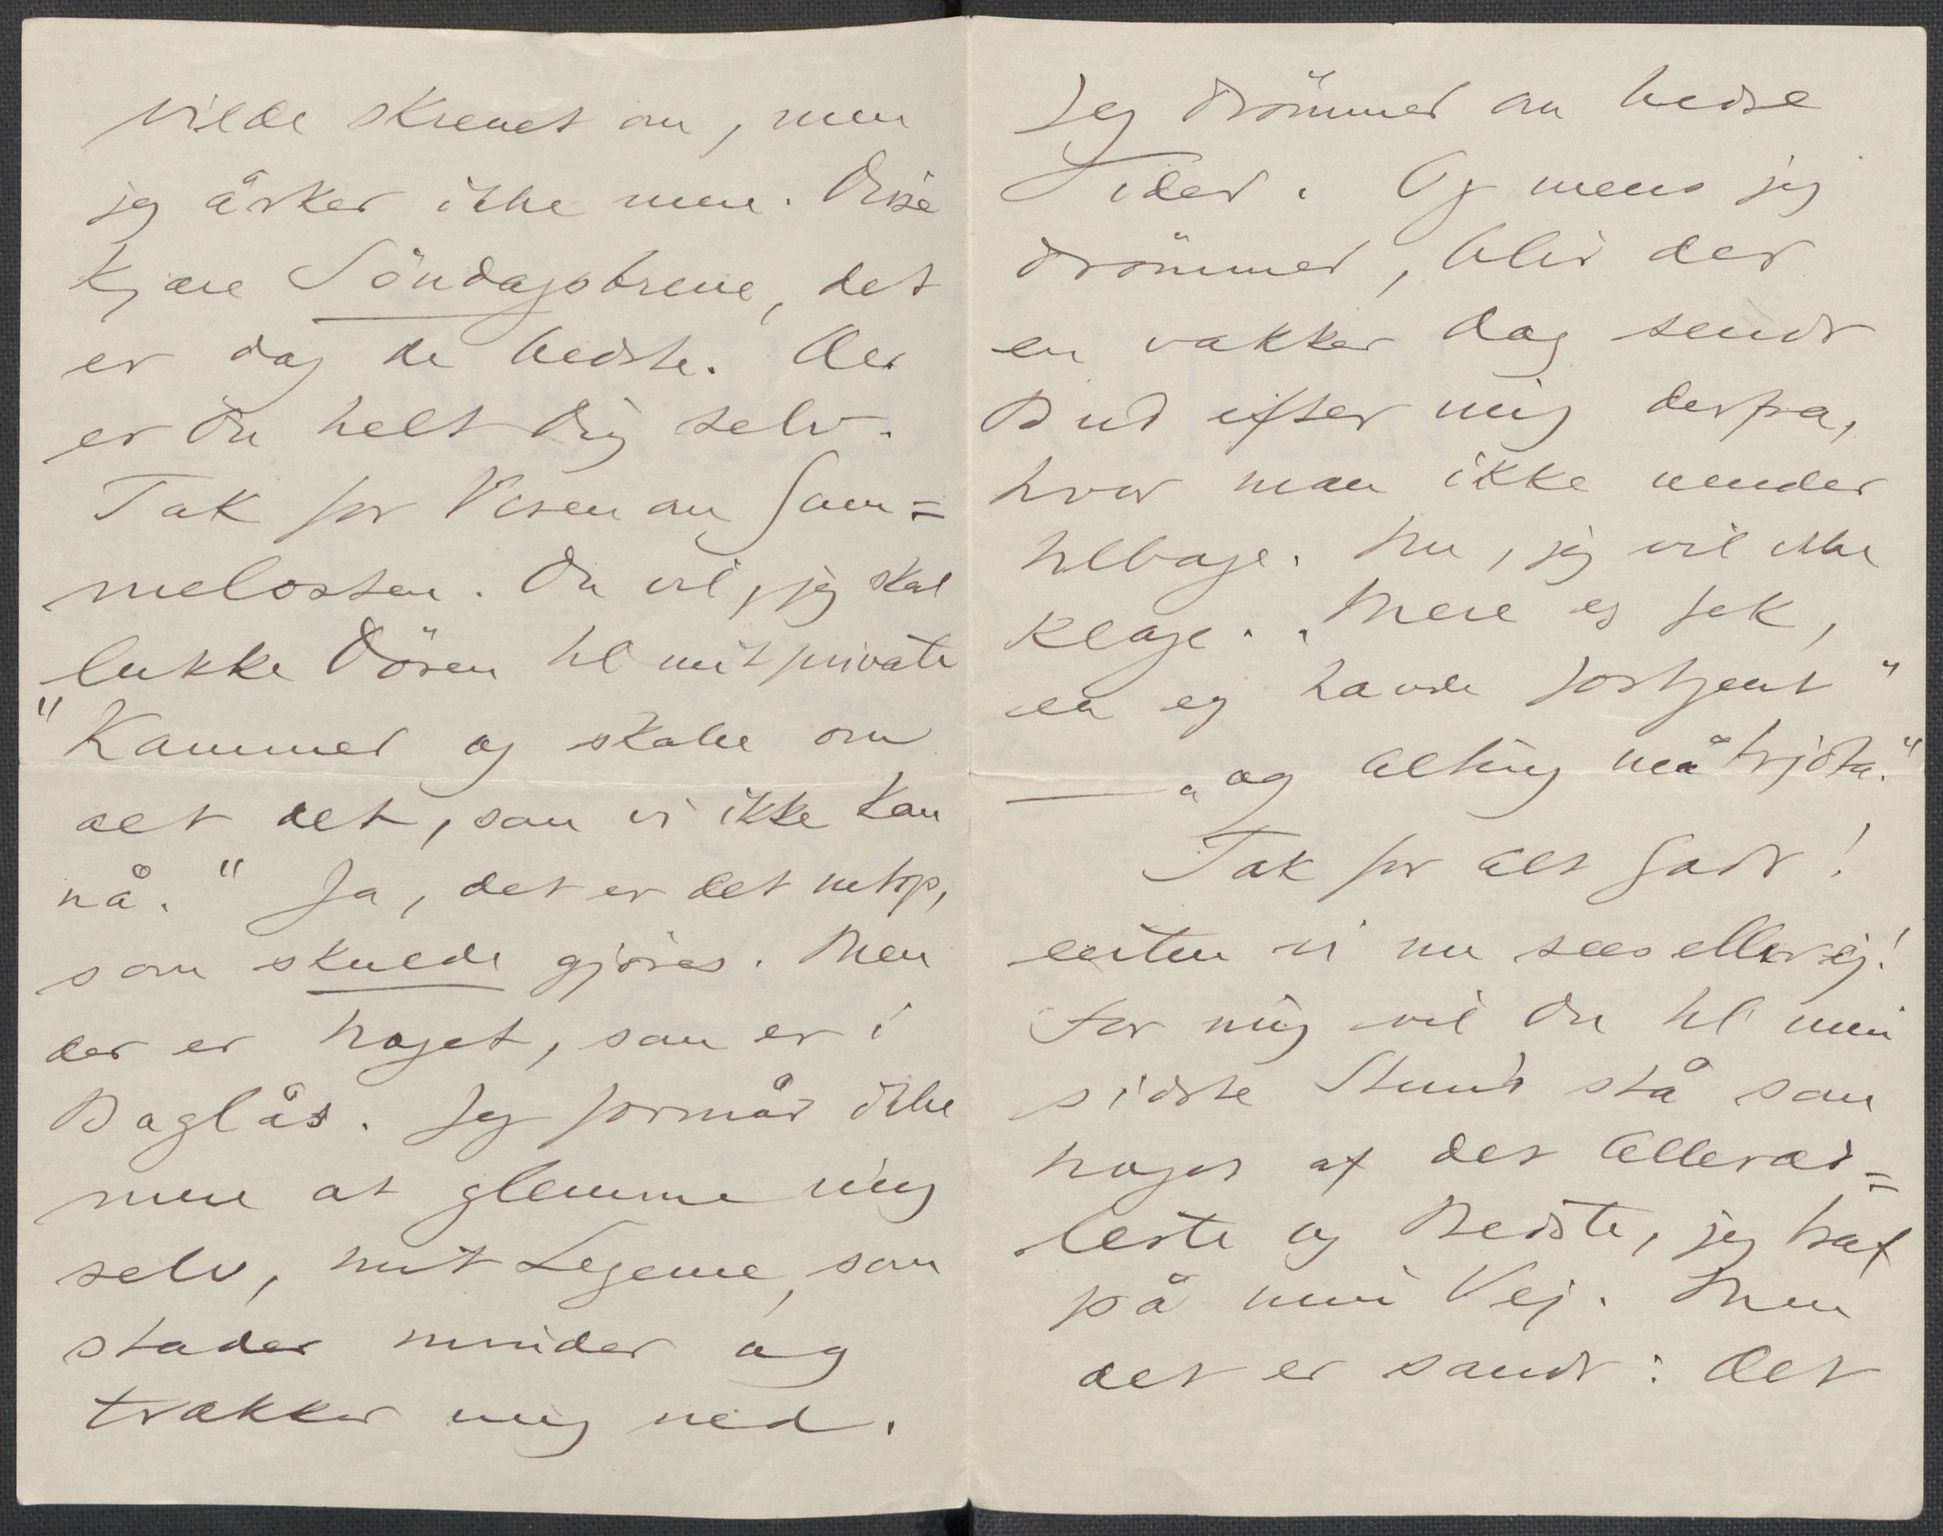 vilde skrevet om, men
jeg årker ikke mer. Disse
kjære Söndagsbreve, det
er dog de bedste. Der
er Du helt Dig selv.
Tak for Visen om Gam=
melosten. Du vil, jeg skal
lukke Dören til mit private
"Kammer og skabe om
alt det, som vi ikke kan
nå." Ja, det er det netop,
som skulde gjöres. Men
der er noget, som er i
Baglås. Jeg formår ikke
mere at glemme mig
selv, mit Legeme, som
stadig minder og
trækker mig ned.
Jeg drömmer om bedre
Tider. Og mens jeg
drömmer, blir der
en vakker Dag sendt
Bud efter mig derfra,
hvor man ikke vender
tilbage. Nu, jeg vil ikke
klage. „Mere eg fek,
en eg havde fortjent"
— „og alting må trjota."
Tak for alt Godt!
enten vi nu sees eller ej!
For mig vil Du til min
sidste Stund stå som
noget af det Allerær=
leste og Bedste, jeg traf
på min Vej. Men
det er sandt: Det